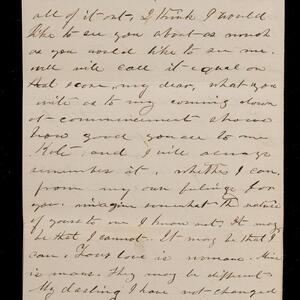 all of it out. I think I would
like to see you about as much
as you would like to see me.
will call it equal on
that score, my dear, what you
write as to my coming down
at commencement shows
how good you are to me
Kate, and I will always
remember it, whether I can,
from my own feelings for
you, imagine somewhat the nature
of yours to me I know not. It may
be that I cannot. It may be that I
can. Your love is womans. Mine
is mans. They may be different.
My darling I have not changed